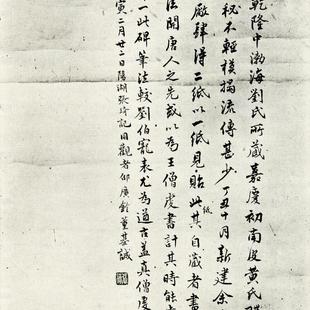 乾隆中渤海劉氏所藏嘉慶初南皮黃氏
祕不輕模搨流傳甚少丁丑十月新建余
廠肆得二紙以一紙見貽此其自藏者書
紙
法開唐人之先或以為王僧虔書計其時能
一此碑筆法較劉伯寵表尤為遒古蓋真僧虔
寅二月廿二日陽湖張琦記同觀者邵廣銓董基誠